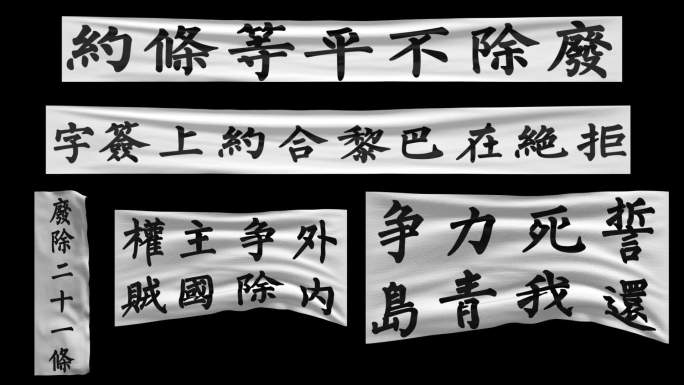 廢除不平等條約
拒絕在巴黎合約上簽字
廢除二十一條
外争主權
内除國賊
誓死力争
還我青島